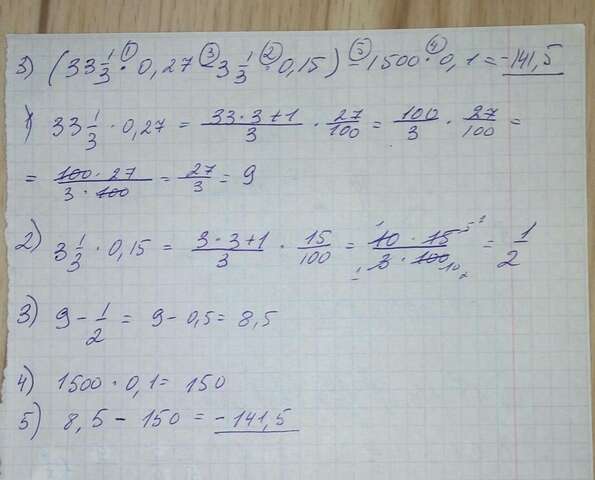 3) (33 1/3 ·① 0,27 -③ 3 1/3 ·② 0,15) -⑤ 1500 ·④ 0,1 = -141,5
1) 33 1/3 · 0,27 = (33·3+1)/3 · 27/100 = 100/3 · 27/100 =
= (100·27)/(3·100) = 27/3 = 9
2) 3 1/3 · 0,15 = (3·3+1)/3 · 15/100 = (10·15)/(3·100) = 1/2
3) 9 - 1/2 = 9 - 0,5 = 8,5
4) 1500 · 0,1 = 150
5) 8,5 - 150 = -141,5